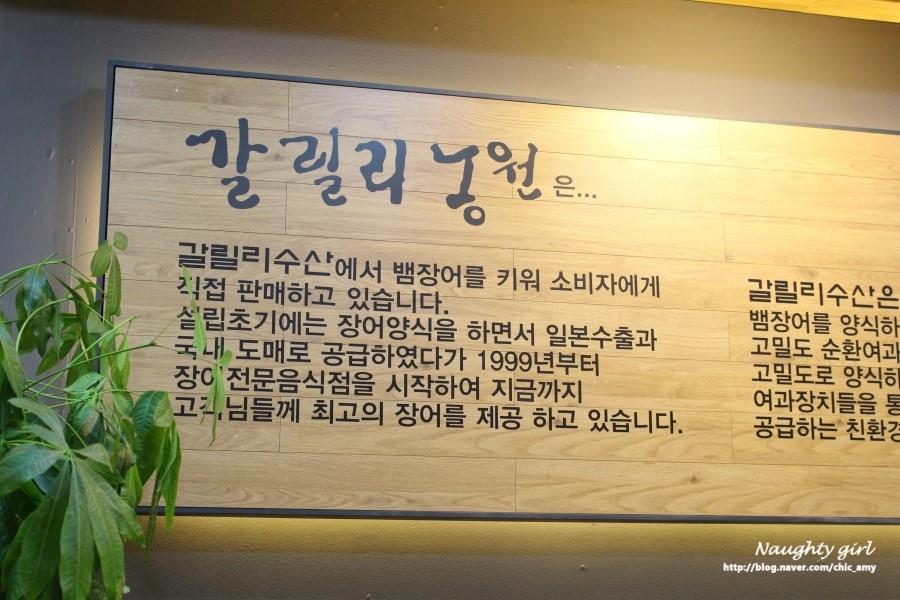 갈릴리 농원은...
갈릴리수산에서 뱀장어를 키워 소비자에게
직접 판매하고 있습니다.
설립초기에는 장어양식을 하면서 일본수출과
국내 도매로 공급하였다가 1999년부터
장어전문음식점을 시작하여 지금까지
고객님들께 최고의 장어를 제공 하고 있습니다.
갈릴리수산은
뱀장어를 양식하
고밀도 순환여과
고밀도로 양식하
여과장치들을 통
공급하는 친환경
Naughty girl
http://blog.naver.com/chic_amy